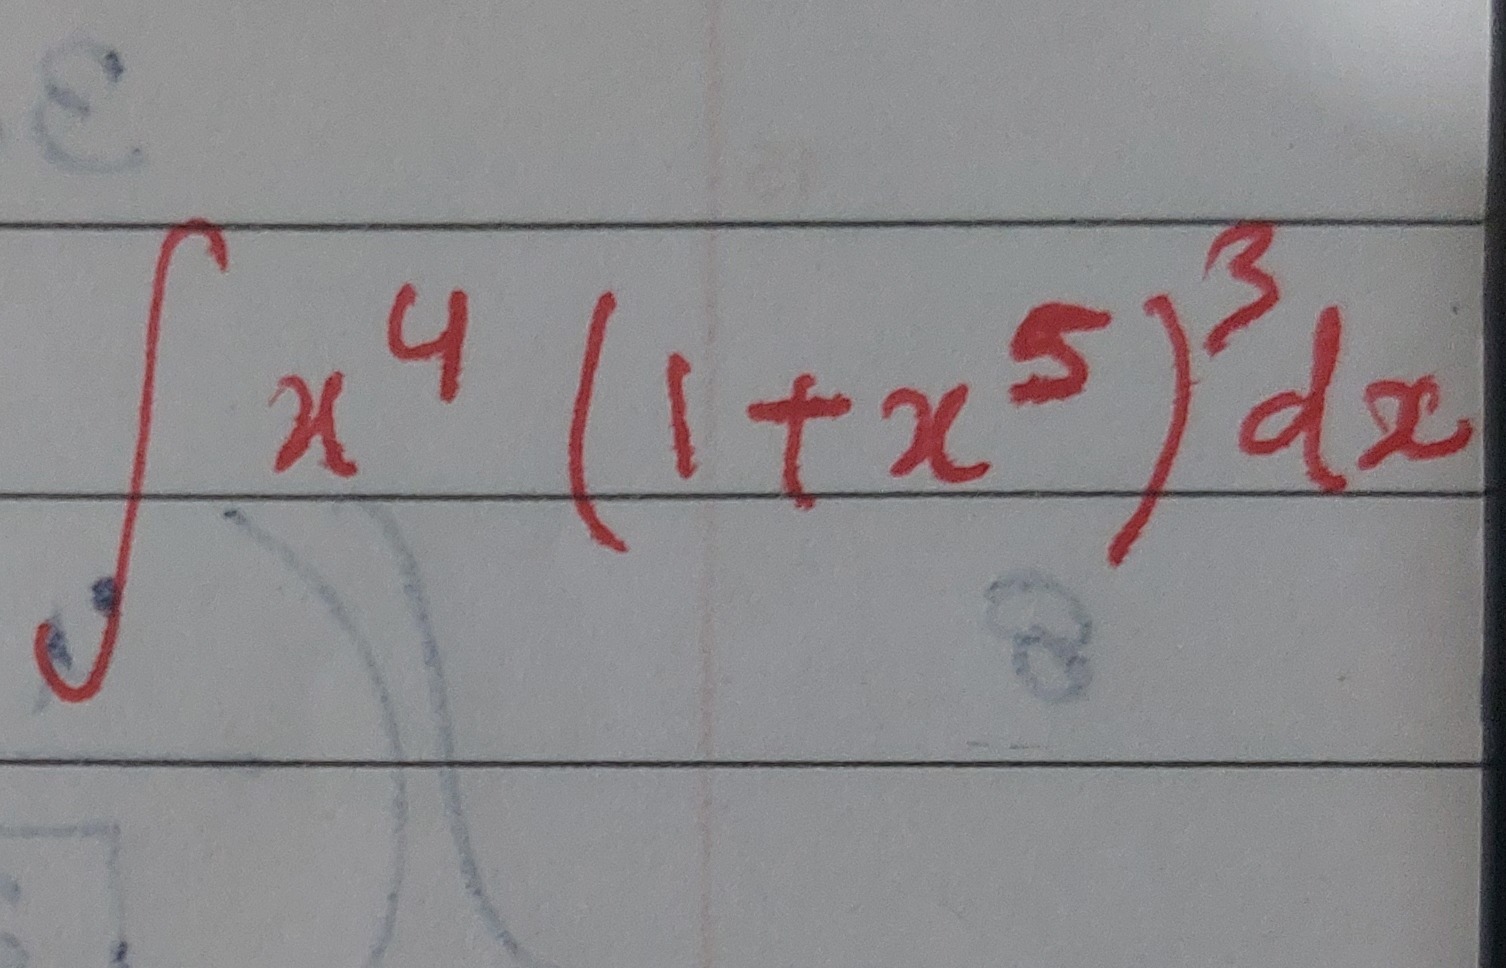 ∫ x⁴ (1 + x⁵)³ dx